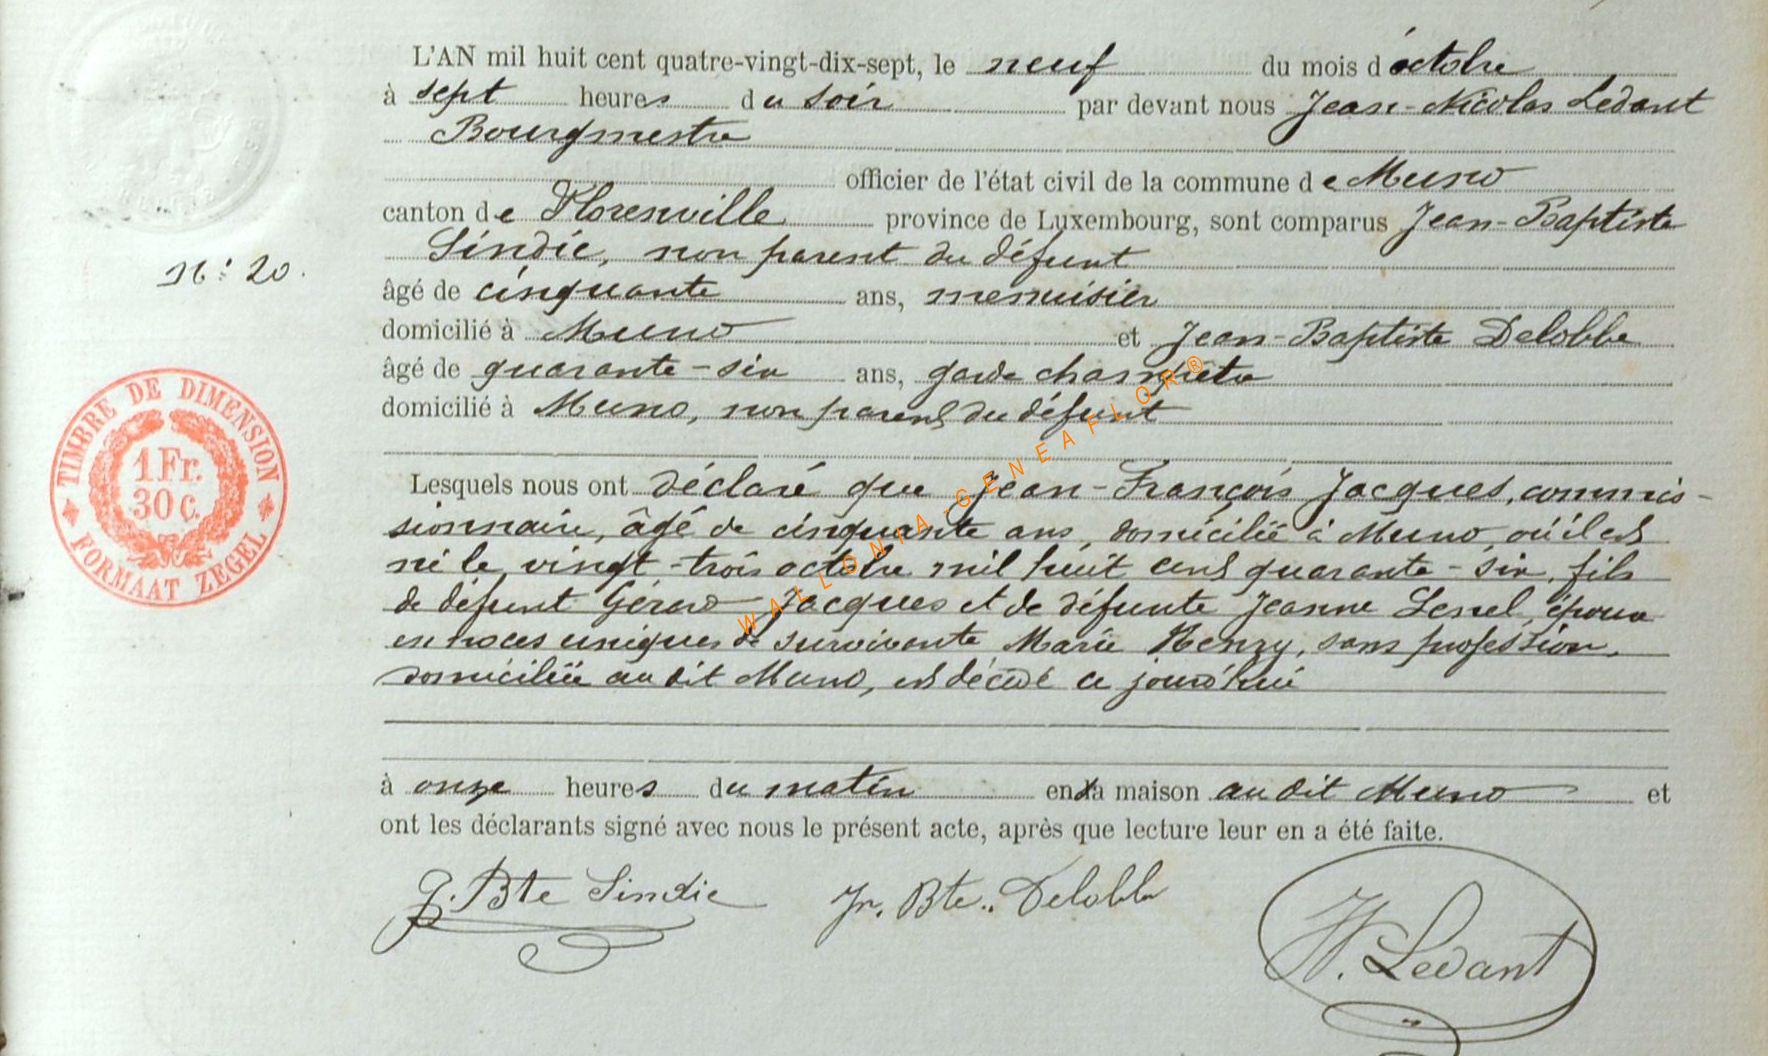 L'AN mil huit cent quatre-vingt-dix-sept, le neuf du mois d'octobre
à sept heures du soir par devant nous Jean-Nicolas Ledant
Bourgmestre
officier de l'état civil de la commune de Muno
canton de Florenville province de Luxembourg, sont comparus Jean-Baptiste
Sindic, non parent du défunt
N° 20.
âgé de cinquante ans, menuisier
domicilié à Muno et Jean-Baptiste Delobbe
âgé de quarante-six ans, garde champêtre
domicilié à Muno, non parent du défunt
TIMBRE DE DIMENSION
1 Fr.
30 C.
FORMAAT ZEGEL
Lesquels nous ont déclaré que Jean-François Jacques, commis-
sionnaire, âgé de cinquante ans, domicilié à Muno où il est
né le vingt-trois octobre mil huit cent quarante-six, fils
de défunt Gérard Jacques et de défunte Jeanne époux
en noces uniques de survivante Marie Henry, sans profession,
domiciliée au dit Muno, est décédé ce jourd'hui
à onze heures du matin en la maison au dit Muno et
ont les déclarants signé avec nous le présent acte, après que lecture leur en a été faite.
J. Bte Sindic Jn. Bte.. Delobbe
N. Ledant
WALLONIA-GENEAFLOR®